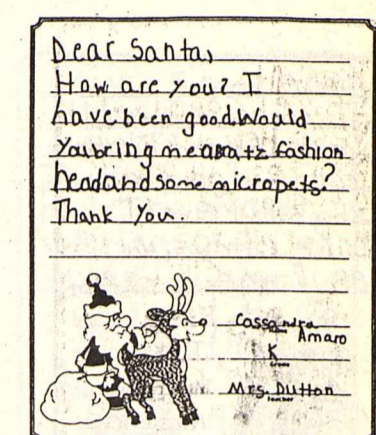 Dear Santa,
How are you? I
have been good. Would
you bring me a Bratz fashion
head and some micropets?
Thank You.
Cassandra
Amaro
K
Grade
Mrs. Dutton
Teacher